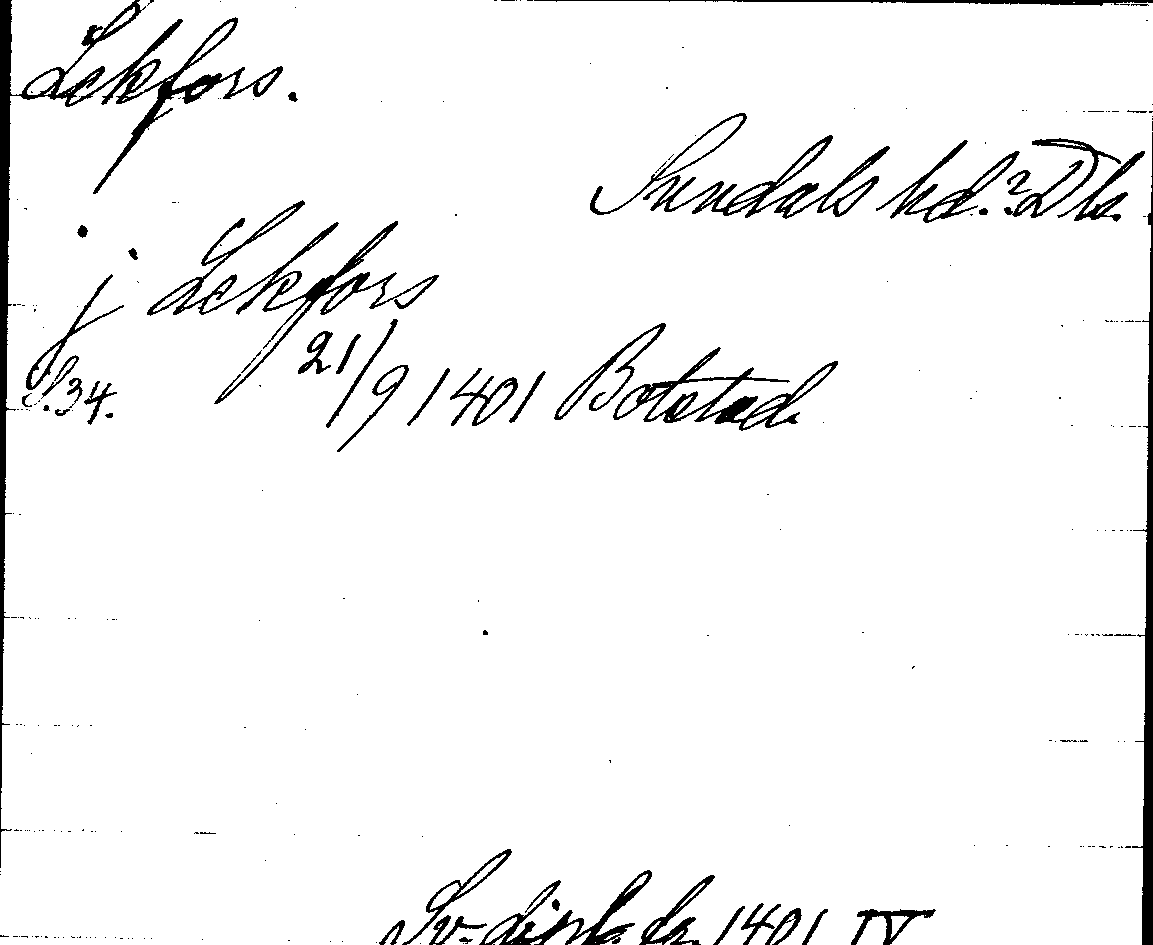 Lekfors.
Sundals hd.? Dls.
j Lekfors
s.34. 21/9 1401 Botstad
Sv. dipl. fr. 1401 IV